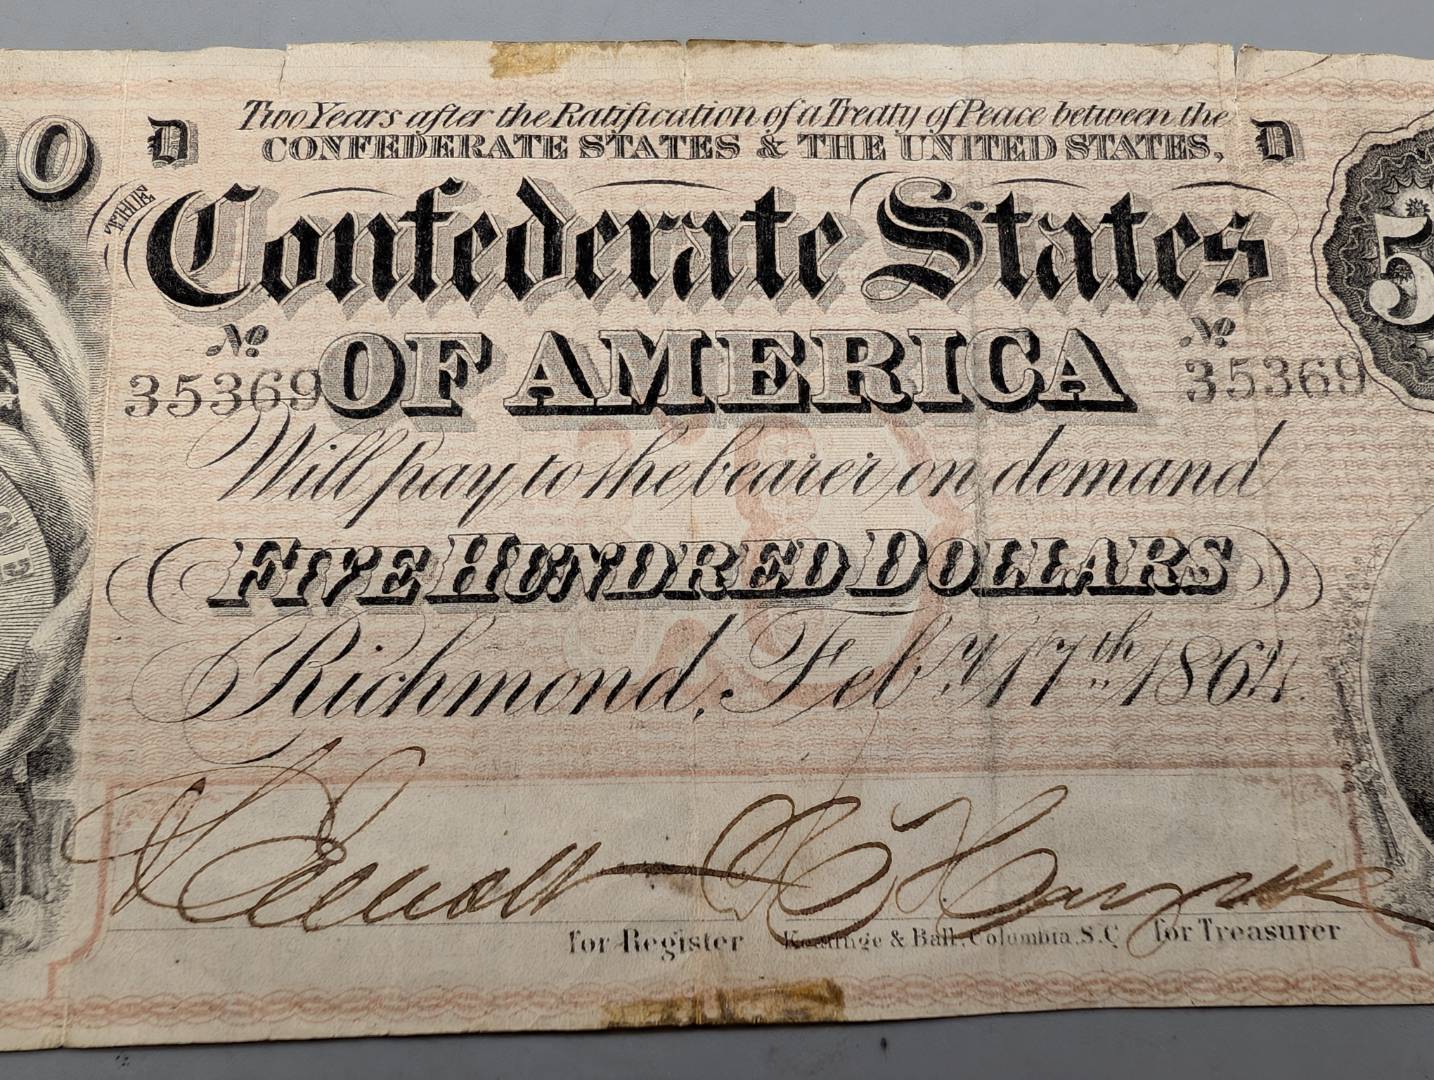 Two Years after the Ratification of a Treaty of Peace between the
D CONFEDERATE STATES & THE UNITED STATES, D
Confederate States
No OF AMERICA No
35369 35369
Will pay to the bearer on demand
FIVE HUNDRED DOLLARS
Richmond, Feby. 17th 1864.
for Register Keatinge & Ball, Columbia, S.C. for Treasurer